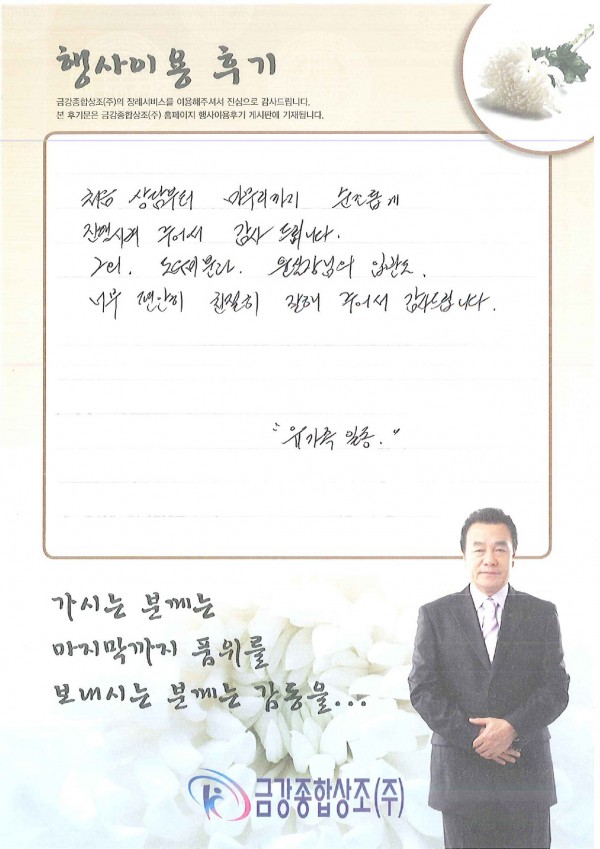 행사이용 후기
금강종합상조(주)의 장례서비스를 이용해주셔서 진심으로 감사드립니다.
본 후기문은 금강종합상조(주) 홈페이지 행사이용후기 게시판에 기재됩니다.
처음 상담부터 마무리까지 순조롭게
진행시켜 주어서 감사 드립니다.
입관도.
너무 편안히 친절히 잘해 주어서 감사드립니다.
"유가족 일동."
가시는 분께는
마지막까지 품위를
보내시는 분께는 감동을...
금강종합상조(주)